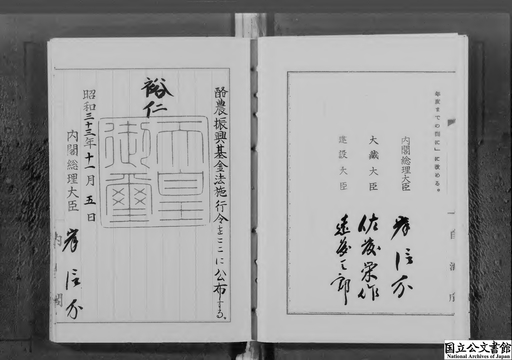 年度までの間に」に改める。
内閣総理大臣 岸信介
大蔵大臣 佐藤栄作
建設大臣 遠藤三郎
酪農振興基金法施行令をここに公布する。
裕仁
天皇御璽
昭和三十三年十一月五日
内閣総理大臣 岸信介
内閣
国立公文書館
National Archives of Japan